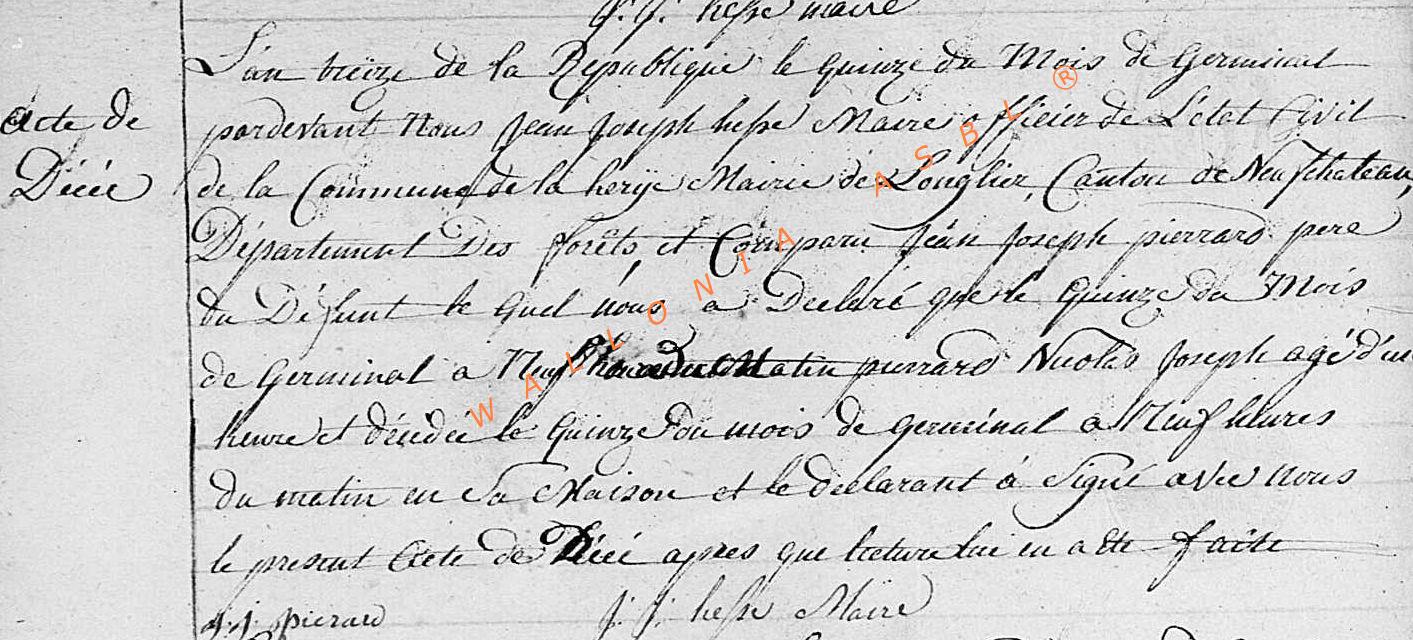 j. j. hesse maire
L'an treize de la Republique le quinze du Mois de Germinal
Acte de
Décée
pardevant Nous Jean Joseph hesse Maire officier de L'état Civil
de la Commune de la herije Mairie de Longlier, Canton de Neufchateau,
Département Des forêts, et Comparu Jean Joseph pierrard pere
du Défunt le quel nous a Declaré que le quinze du Mois
de Germinal a Neuf heures du Matin pierrard Nicolas Joseph agé d'un
heure et décédée le quinze du mois de germinal a Neuf heures
du matin en Sa Maison et le declarant à Signé avec nous
le present Acte de Décé apres que lecture lui en a été faite
j. j. pierard
j. j. hesse Maire
WALLONIA ASBL ®